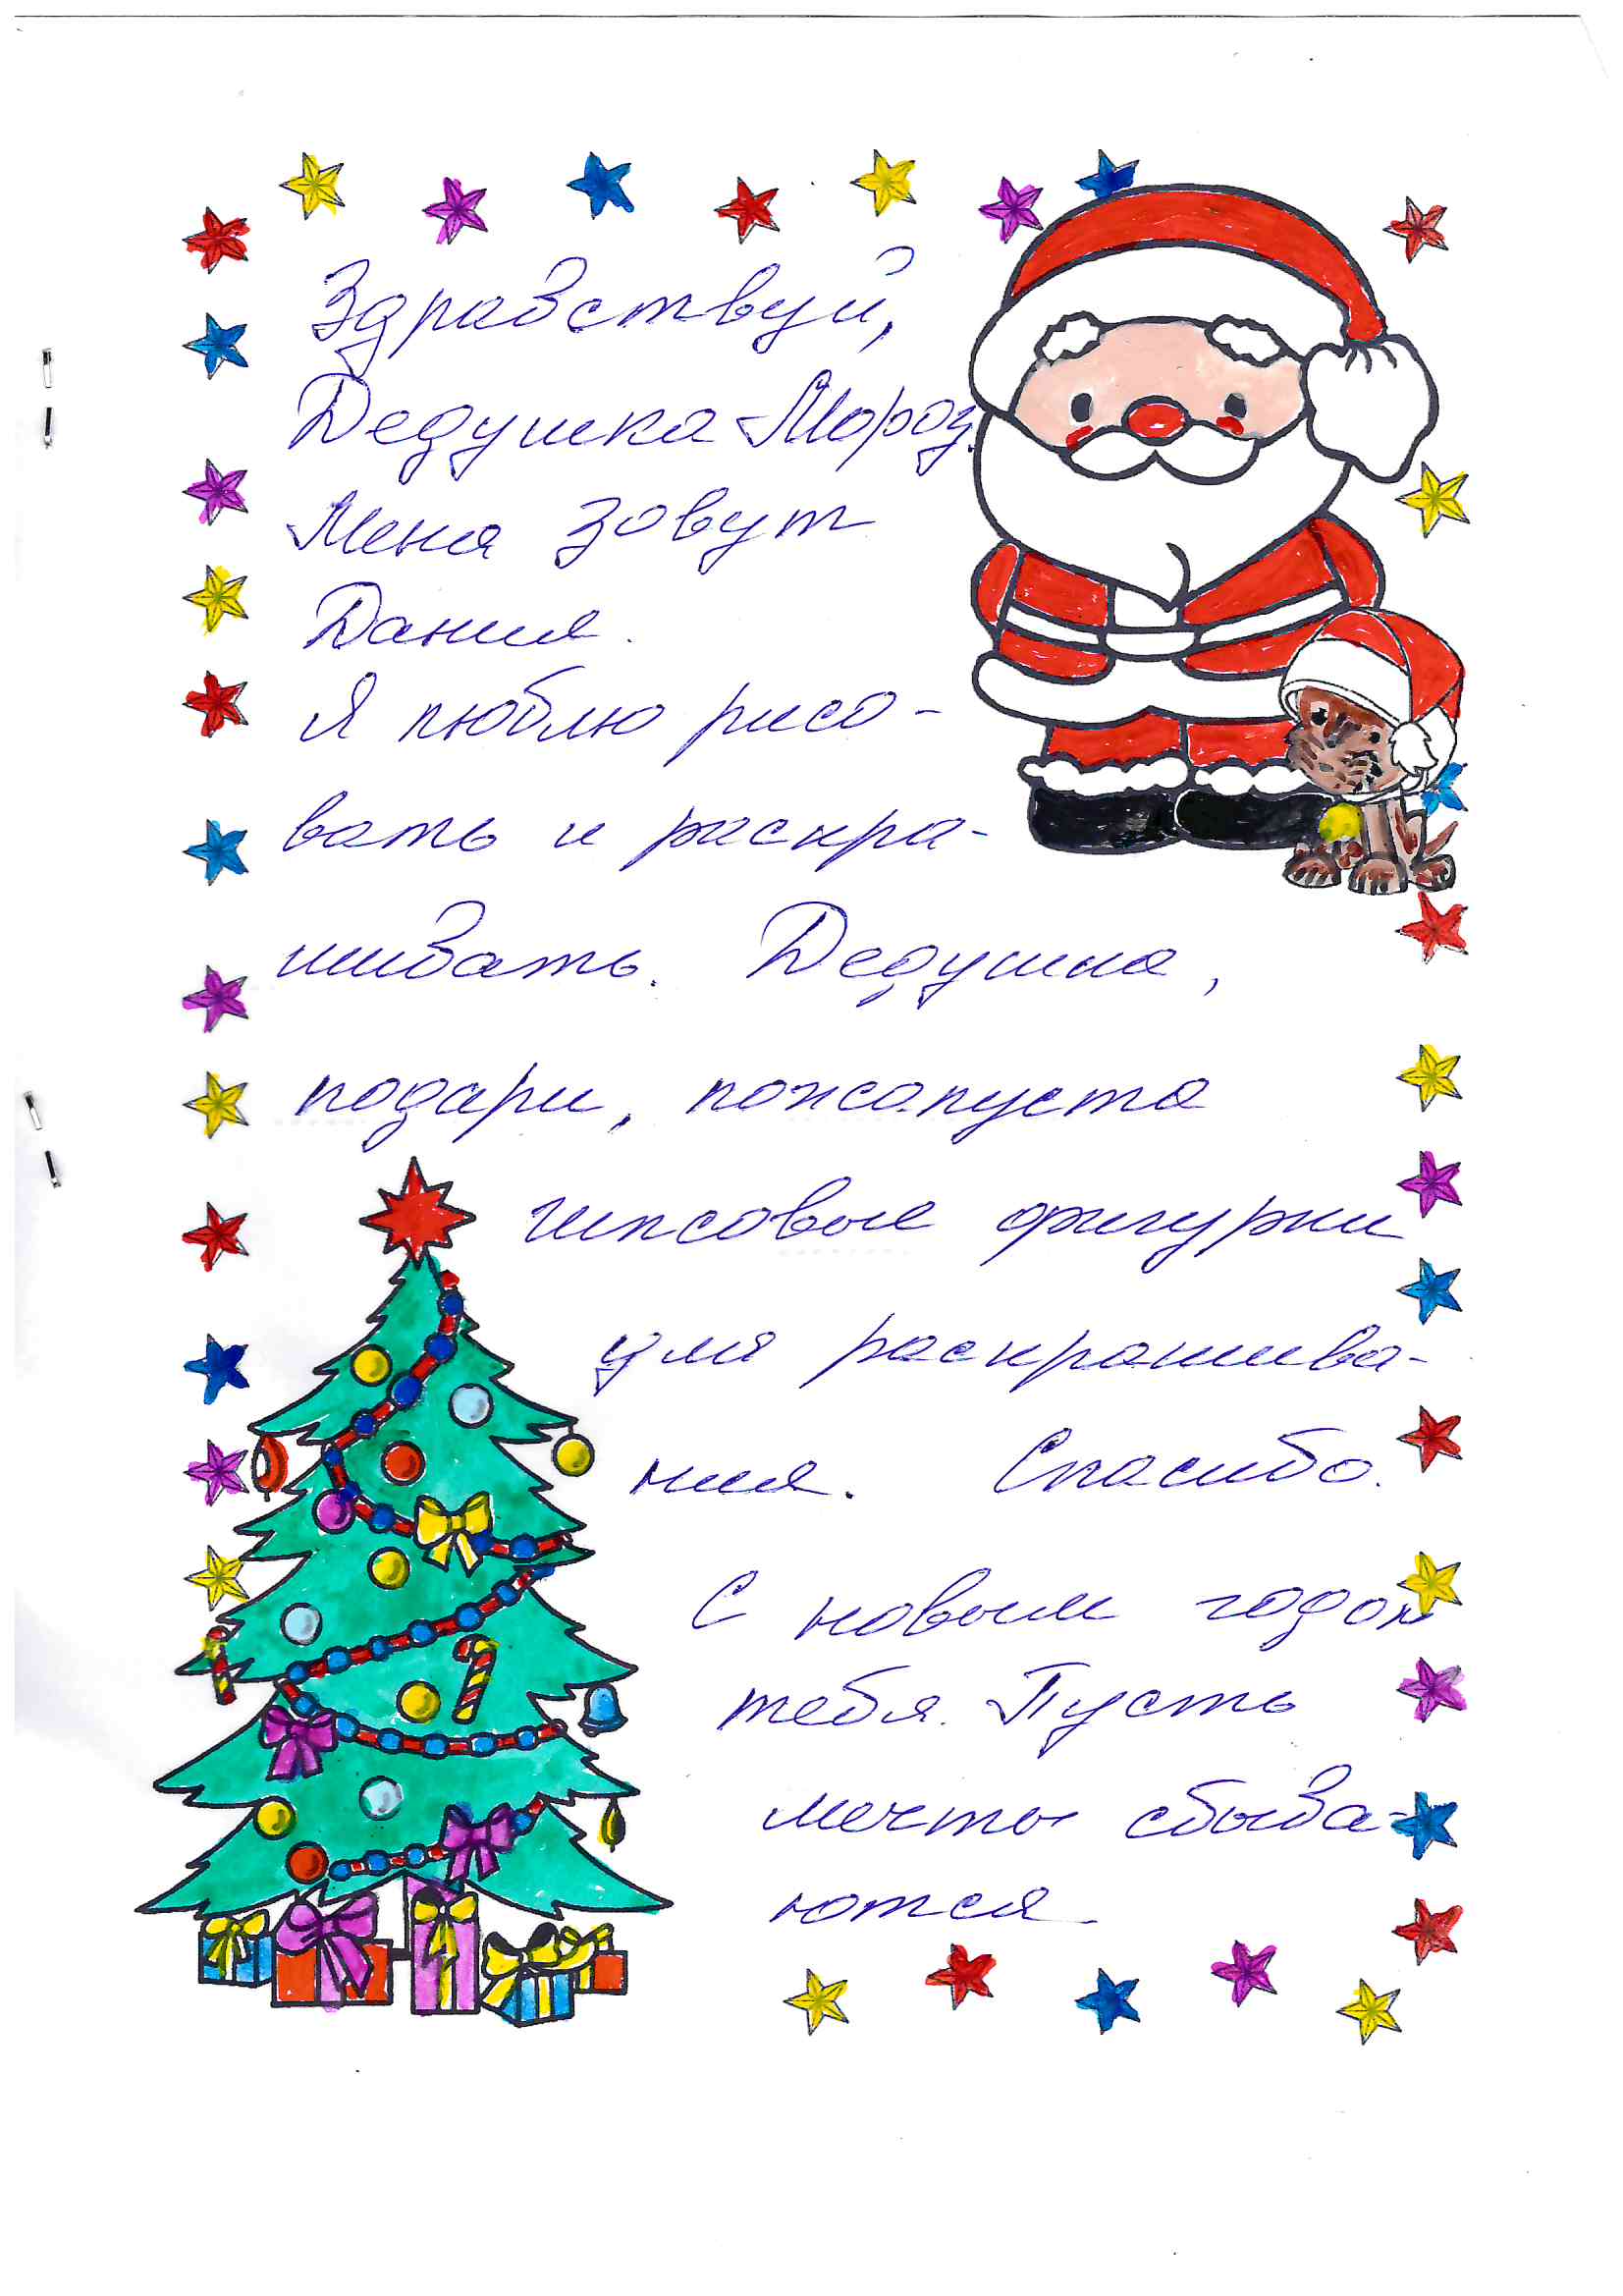 Здравствуй,
Дедушка Мороз.
Меня зовут
Дания.
Я люблю рисо-
вать и раскра-
шивать. Дедушка,
подари, пожалуста
гипсовые фигурки
для раскрашива-
ния. Спасибо.
С новым годом
тебя. Пусть
мечты сбыва-
ются.